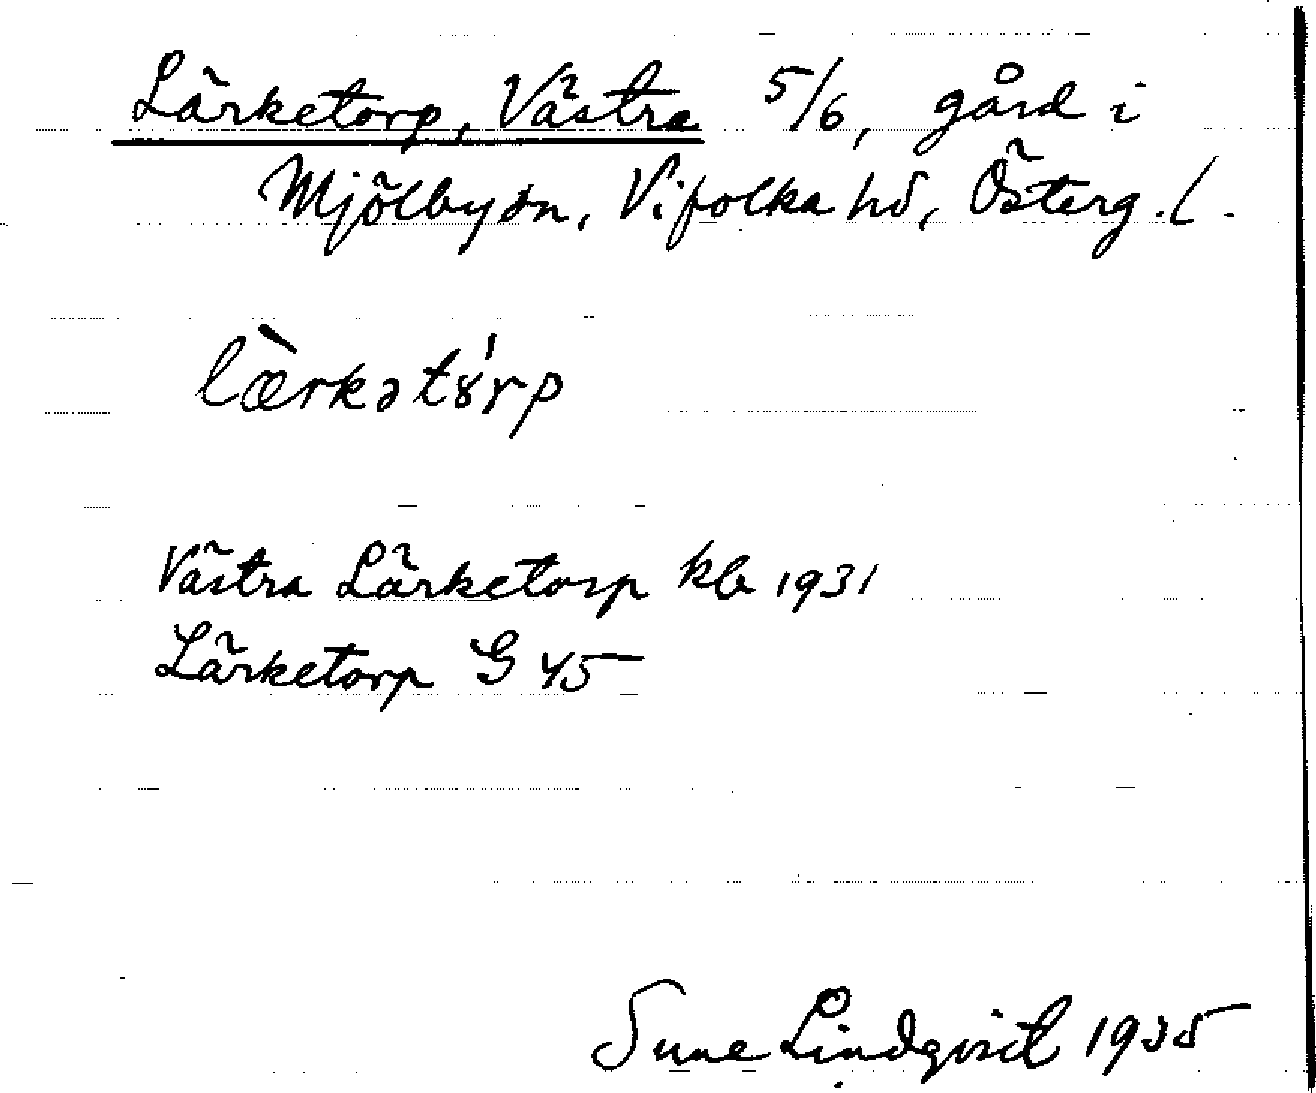 Lärketorp, Västra 5/6, gård i
Mjölby sn, Vifolka hd, Österg.l.
lærkətɤrp
Västra Lärketorp kb 1931
Lärketorp G 45
Sune Lindqvist 1935